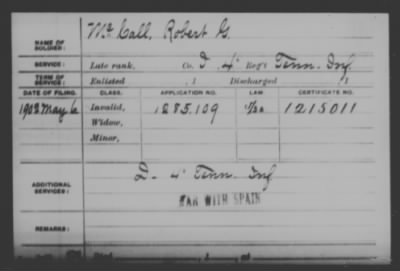 NAME OF SOLDIER: McCall, Robert G.
SERVICE: Late rank, Co. I, 4" Reg't Tenn. Inf.
TERM OF SERVICE: Enlisted , 1 Discharged , 1
DATE OF FILING. CLASS. APPLICATION NO. LAW CERTIFICATE NO.
1902 May 6 Invalid, 1285.109 1215011
Widow,
Minor,
ADDITIONAL SERVICES: 4" Tenn. Inf
WAR WITH SPAIN
REMARKS: